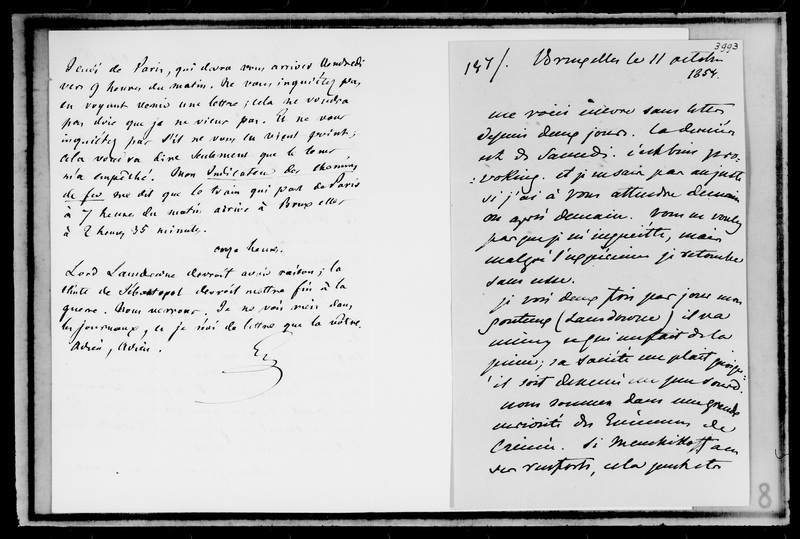 Jeudi de Paris, qui devra vous arriver Vendredi
vers 9 heures du matin. Ne vous inquiétez pas
en voyant venir une lettre; cela ne voudra
pas dire que je ne viens pas. Et ne vous
inquiétez pas s'il ne vous en vient point;
cela voudra dire seulement que le tems
m'a empêché. Mon Indicateur des chemins
de fer me dit que le train qui part de Paris
à 7 heures du matin arrive à Bruxelles
à 2 heures 35 minutes.
onze heures.
Lord Lansdowne devroit avoir raison; la
chute de Sébastopol devroit mettre fin à la
guerre. Nous verrons. Je ne vois rien dans
les journaux, et je n'ai de lettre que la vôtre.
Adieu, Adieu.
3993
147/. Bruxelles le 11 octobre
1854.
me voici encore sans lettres
depuis deux jours. La dernière
est de Samedi. c'est bien pro-
voking. et je ne sais pas
si j'ai à vous attendre demain
ou après demain. vous ne voulez
pas que je m'inquiète, mais
malgré l'expérience je retombe
sans cesse.
je vois deux fois par jour mon
(Lansdowne) il va
mieux ce qui me fait de la
peine; sa société me plait quoiqu'
il soit devenu un peu sourd.
nous sommes dans une grande
curiosité des
Crimée. Si Menchikoff a eu
ses renforts, cela peut être
8